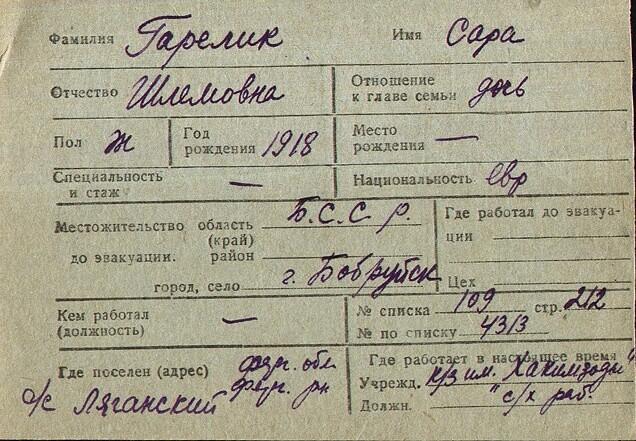 Фамилия Гарелик Имя Сара
Отчество Шлемовна Отношение к главе семьи дочь
Пол Ж Год рождения 1918 Место рождения —
Специальность и стаж — Национальность евр
Местожительство область Б.С.С.Р. Где работал до эвакуа-
(край) ции
до эвакуации. район
город, село г. Бобруйск Цех
Кем работал (должность) — № списка 109 стр. 212
№ по списку 4313
Где поселен (адрес) ферг. обл. Где работает в настоящее время
ферг. рн Учрежд. к/з им. Хакимзоды
с/с Ляганский Должн. "с/х раб."